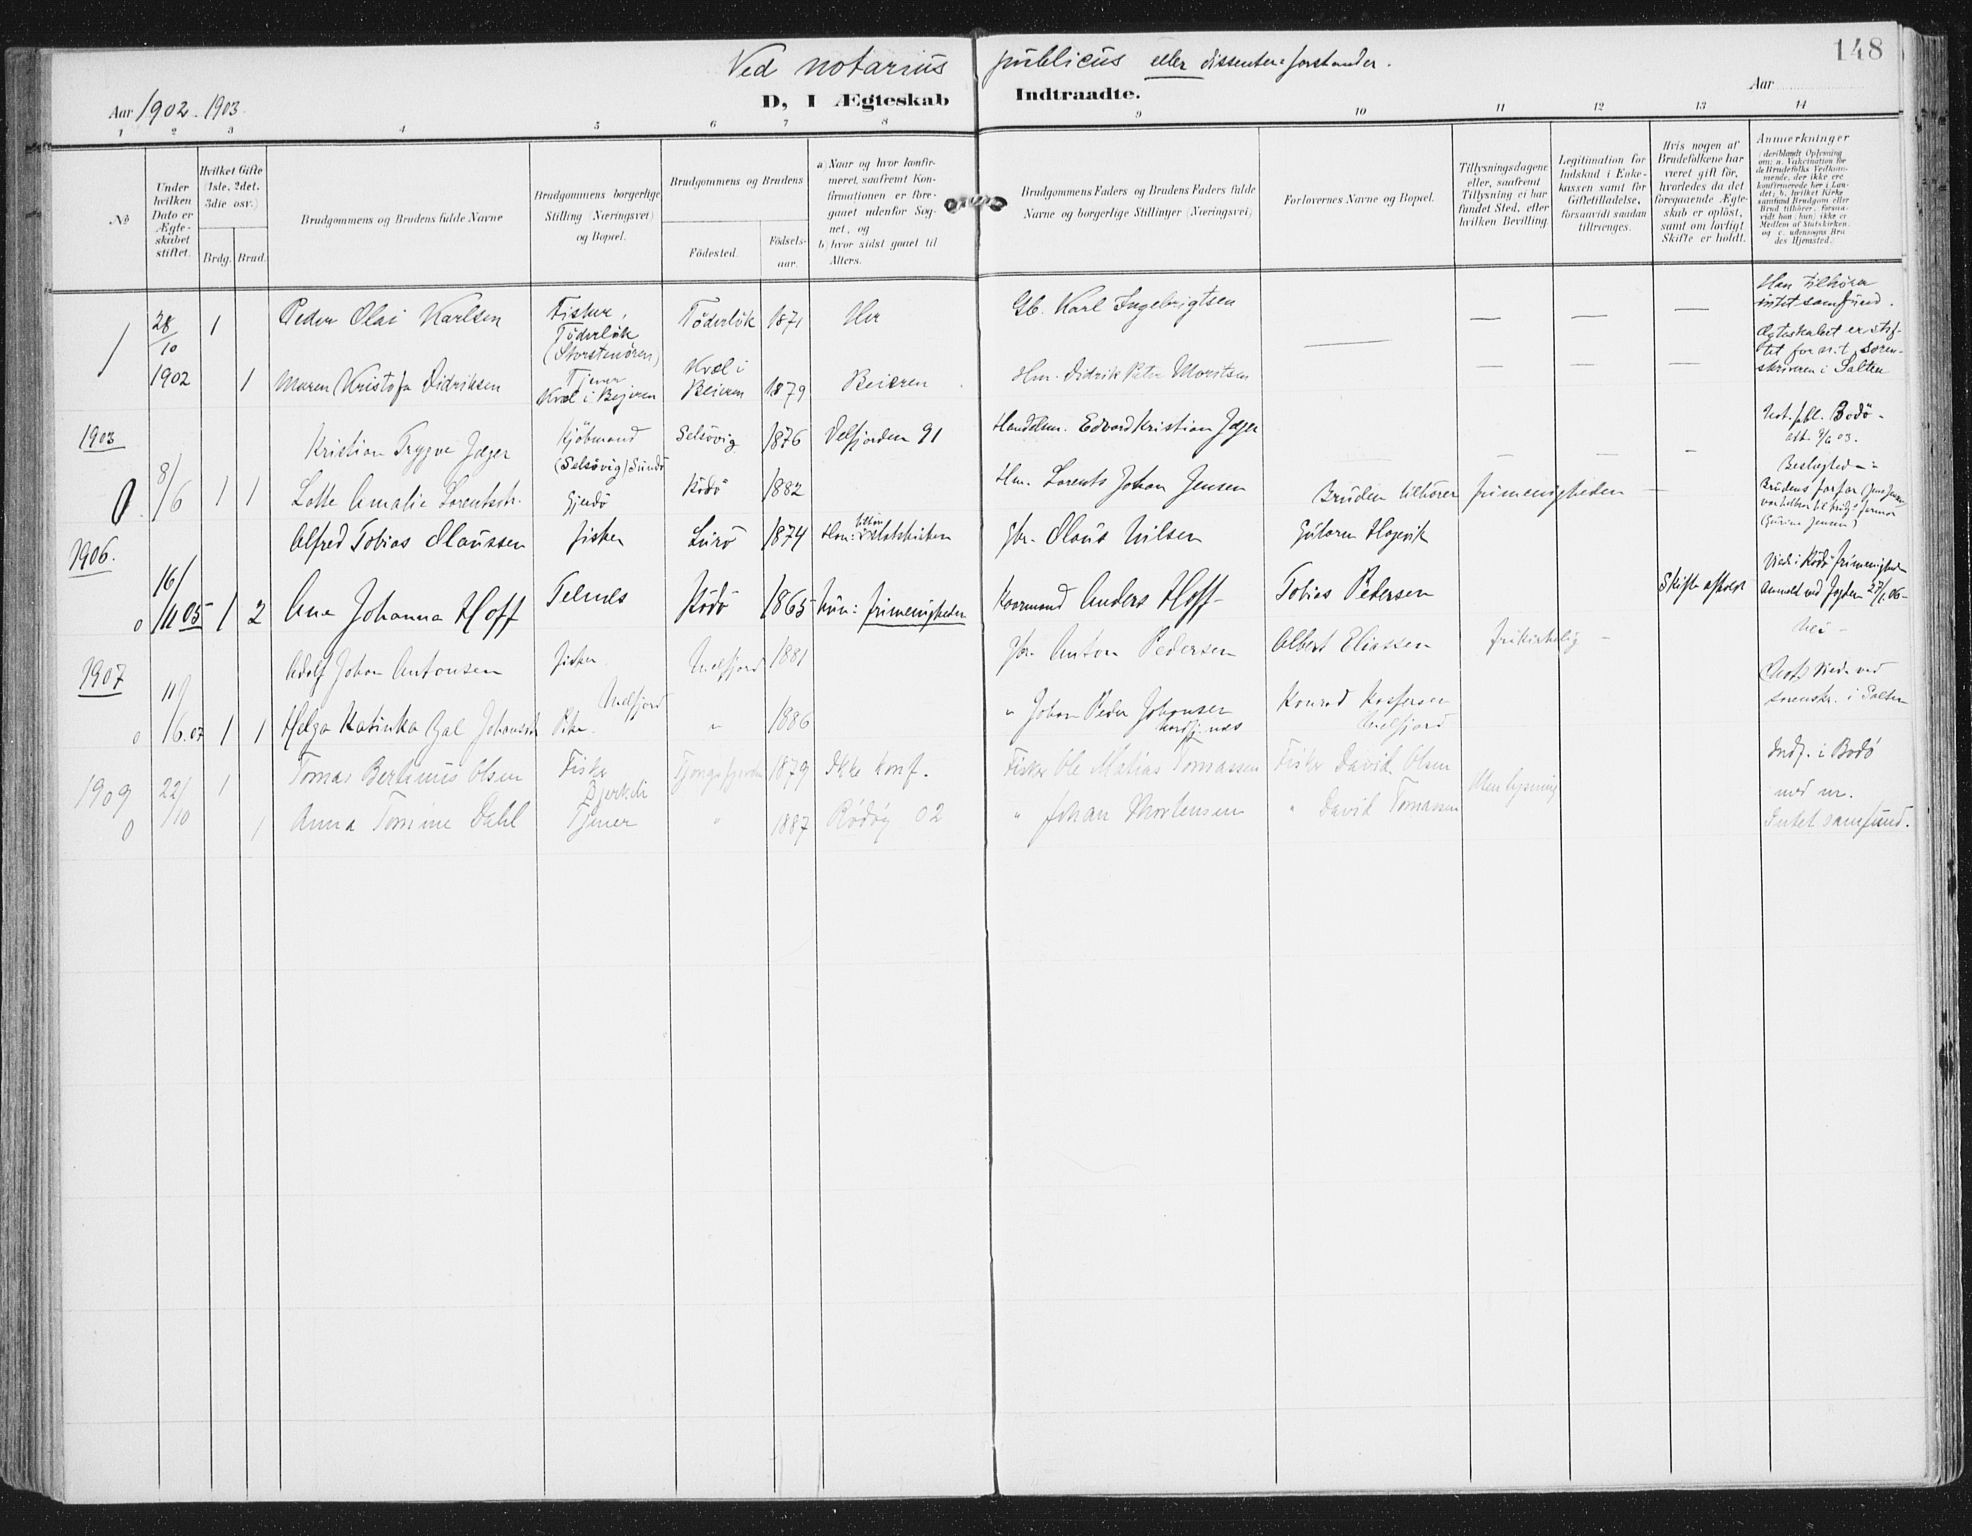 148
Ved notarius publicus eller dissenterforstander.
Aar 1902. 1903.
D, I Ægteskab Indtraadte.
Aar
1 2 3 4 5 6 7 8 9 10 11 12 13 14
No
Under hvilken Dato er Ægteskabet stiftet.
Hvilket Gifte (1ste, 2det, 3die osv.)
Brdg. Brud.
Brudgommens og Brudens fulde Navne
Brudgommens borgerlige Stilling (Næringsvei) og Bopæl.
Brudgommens og Brudens
Födested.
Födsels-aar.
a) Naar og hvor konfirmeret, saafremt Konfirmationen er foregaaet udenfor Sognet, og
b) hvor sidst gaaet til Alters.
Brudgommens Faders og Brudens Faders fulde Navne og borgerlige Stillinger (Næringsvei)
Forlovernes Navne og Bopæl.
Tillysningsdagene eller, saafremt Tillysning ei har fundet Sted, efter hvilken Bevilling.
Legitimation for Indskud i Enkekassen samt for Giftetilladelse, forsaavidt saadan tiltrænges.
Hvis nogen af Brudefolkene har været gift för, hvorledes da det foregaaende Ægteskab er oplöst, samt om lovligt Skifte er holdt.
Anmerkninger
1 28/10 1 Peder Olai Karlsen Fisker, Töderlök (Storstenören) Töderlök 1871 Her Gb. Karl Ingebrigtsen — — — — Han tilhörer intet samfund.
1902 1 Maren Kristofa Didriksen Tjener Kvæl i Bejeren Kvæl i Beieren 1879 Beieren Hm. Didrik Peter Moritsen — — — Ægteskabet er stiftet for n.t. sorenskriveren i Salten
1903 Kristian Trygve Jæger Kjöbmand (Selsövig) Sundö Selsövig 1876 Velfjorden 91 Handelsm. Edvard Kristian Jæger — — — Not. pbl. Bodö
0 8/6 1 1 Lotte Amalie Lorentsdtr. Gjerdö Rödö 1882 Hm. Lorents Johan Jensen Bruden tilhörer frimenigheden — Brudens farfar
1906. Alfred Tobias Olaussen Fisker Lurö 1874 Han: Statskirken Gbr. Olaus Nilsen Gutorm Hagevik
0 16/11 05 1 2 Ane Johanna Hoff Telnes Rödö 1865 hun: frimenigheden Kaarmand Anders Hoff Tobias Pedersen Skifte afholdt Viede i Rödö frimenighed
1907 Adolf Johan Antonsen Fisker Melfjord 1881 Gbr. Anton Pedersen Albert Eliassen frikirkelig — Nei —
0 16.07 1 1 Helga Katinka Johansdtr Pike. Melfjord " 1886 " Johan Peder Johansen Nordfj.nes Konrad Kaspersen Melfjord Viede ved sorenskr. i Salten
1909 22/10 1 Tomas Bertinus Olsen Fisker Bjerkeli Tjongsfjorden 1879 Ikke konf. Fisker Ole Matias Tomassen Fisker David Olsen Uten lysning Indf. i Bodö
0 1 Anna Tomine Dahl Tjener " 1887 Rödöy 02 " Johan Mortensen " David Tomassen med nr. Intet samfund.